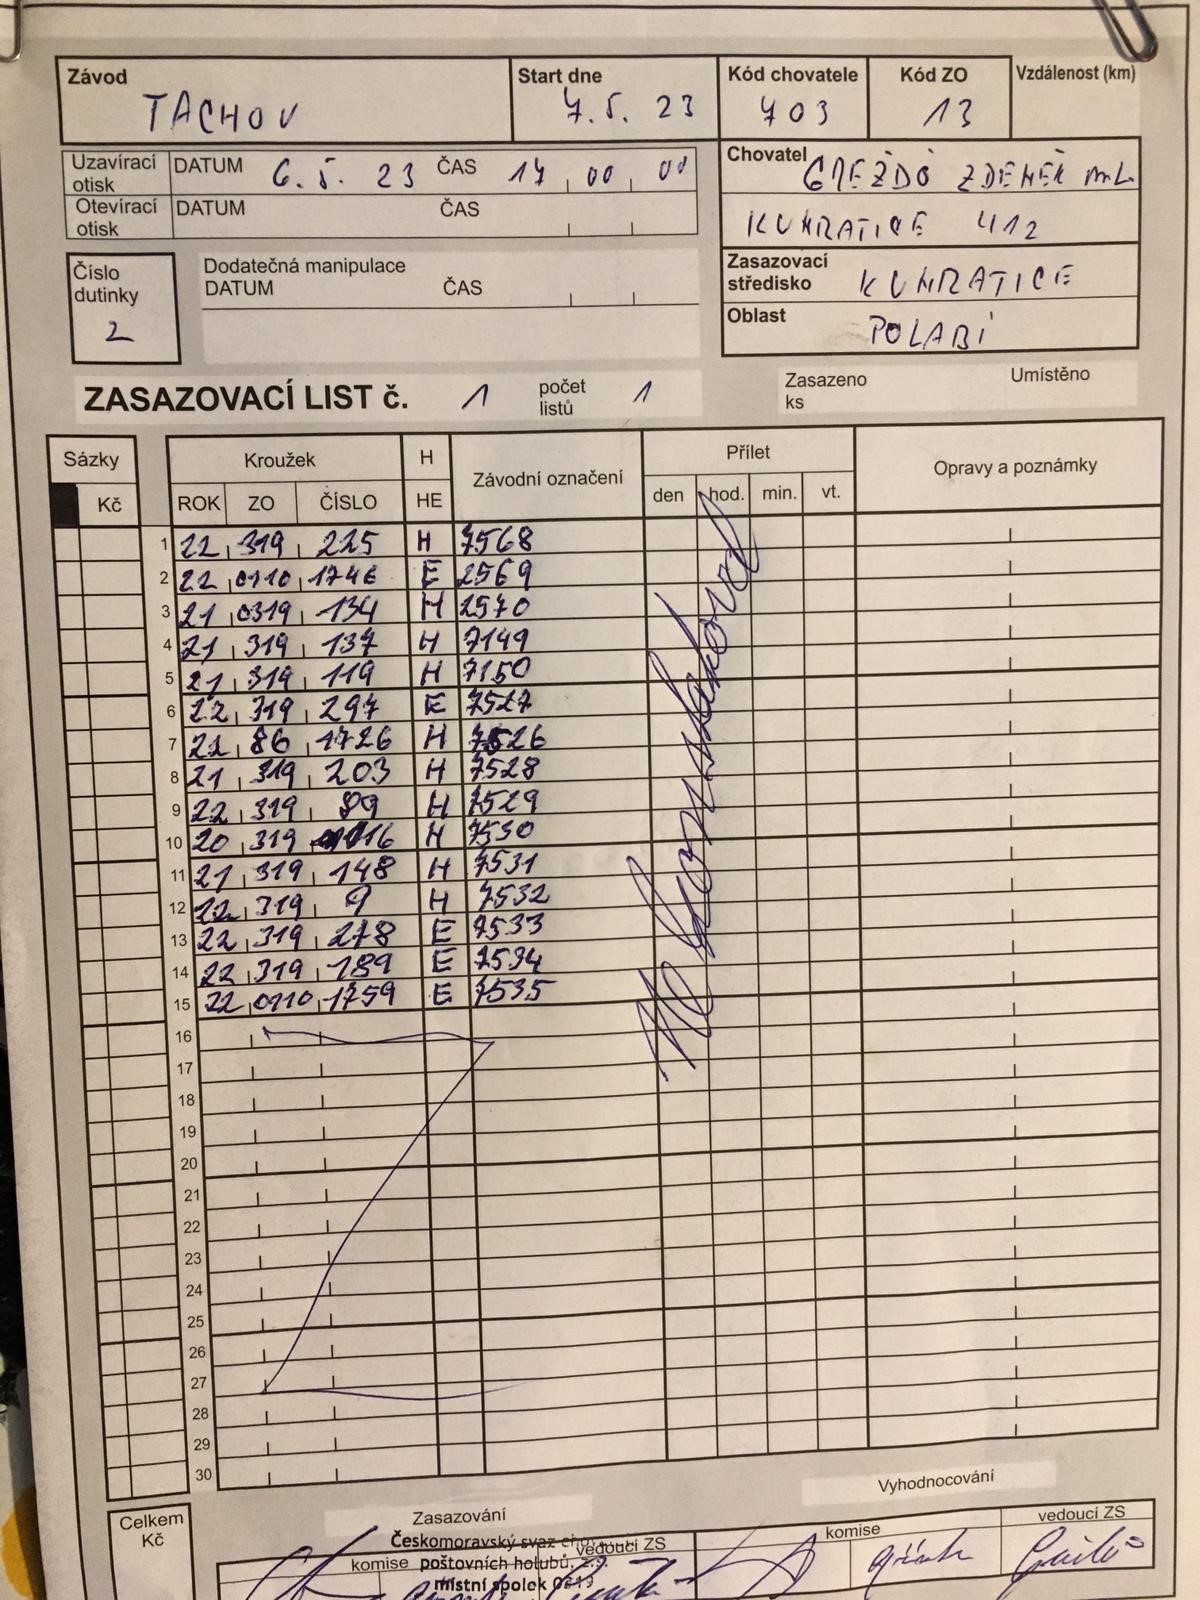 Závod Start dne Kód chovatele Kód ZO Vzdálenost (km)
TACHOV 7.5. 23 703 13
Uzavírací otisk DATUM 6.5. 23 ČAS 17 00 00
Otevírací otisk DATUM ČAS
Chovatel GREŽDO ZDENĚK ML.
KUNRATICE 412
Číslo dutinky 2
Dodatečná manipulace
DATUM ČAS
Zasazovací středisko KUNRATICE
Oblast POLABÍ
ZASAZOVACÍ LIST č. 1 počet listů 1 Zasazeno ks Umístěno
Sázky Kroužek H Závodní označení Přílet Opravy a poznámky
Kč ROK ZO ČÍSLO HE den hod. min. vt.
1 22 319 225 H 7568
2 22 0110 1746 E 2569
3 21 0319 134 H 2570
4 21 319 137 H 7149
5 21 319 119 H 7150
6 22 319 297 E 7527
7 21 86 1726 H 7526
8 21 319 203 H 7528
9 22 319 89 H 7529
10 20 319 H 7530
11 21 319 148 H 7531
12 22 319 9 H 7532
13 22 319 278 E 7533
14 22 319 189 E 7534
15 22 0110 1759 E 7535
16
17
18
19
20
21
22
23
24
25
26
27
28
29
30
Celkem Kč
Zasazování Vyhodnocování
komise vedoucí ZS komise vedoucí ZS
Českomoravský svaz
poštovních holubů, z.s.
místní spolek 0319